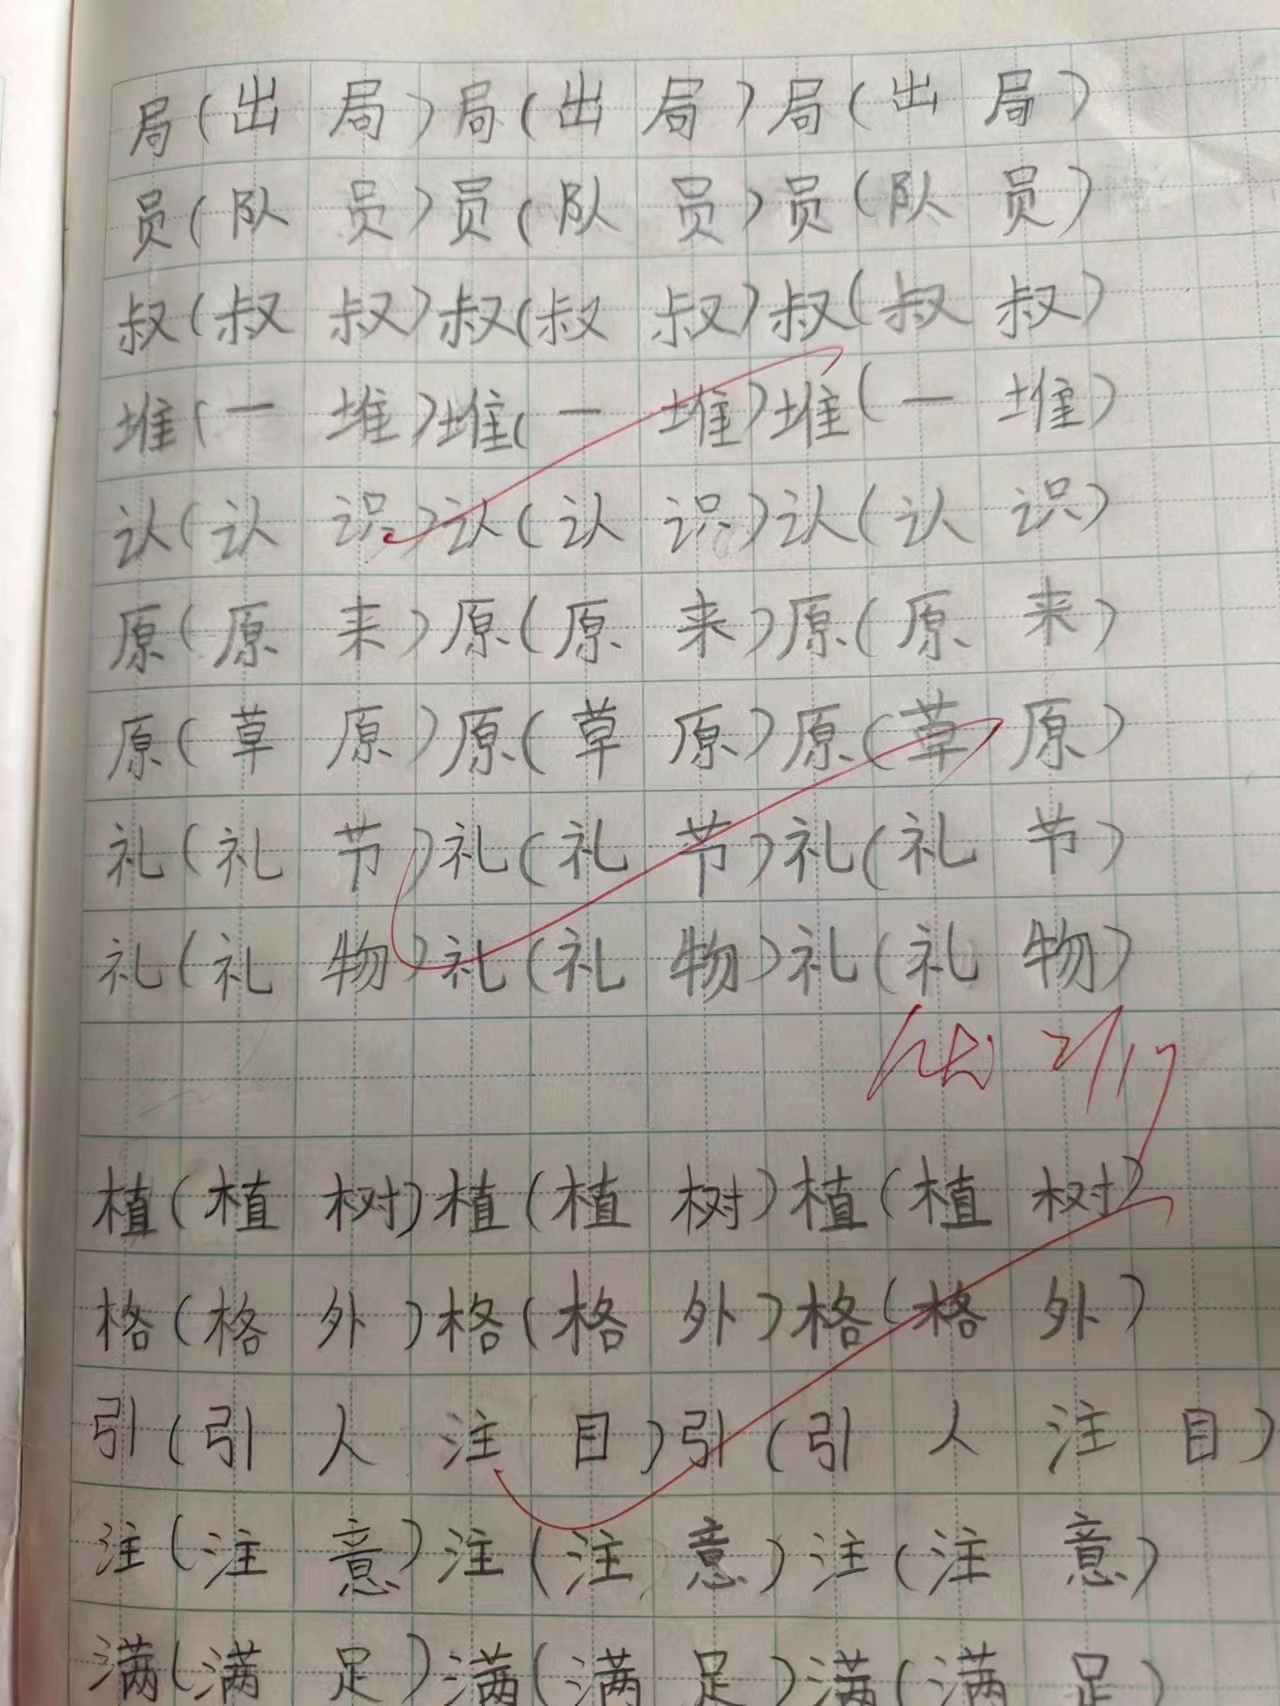 局(出局)局(出局)局(出局)
员(队员)员(队员)员(队员)
叔(叔叔)叔(叔叔)叔(叔叔)
堆(一堆)堆(一堆)堆(一堆)
认(认识)认(认识)认(认识)
原(原来)原(原来)原(原来)
原(草原)原(草原)原(草原)
礼(礼节)礼(礼节)礼(礼节)
礼(礼物)礼(礼物)礼(礼物)
植(植树)植(植树)植(植树)
格(格外)格(格外)格(格外)
引(引人注目)引(引人注目)
注(注意)注(注意)注(注意)
满(满足)满(满足)满(满足)